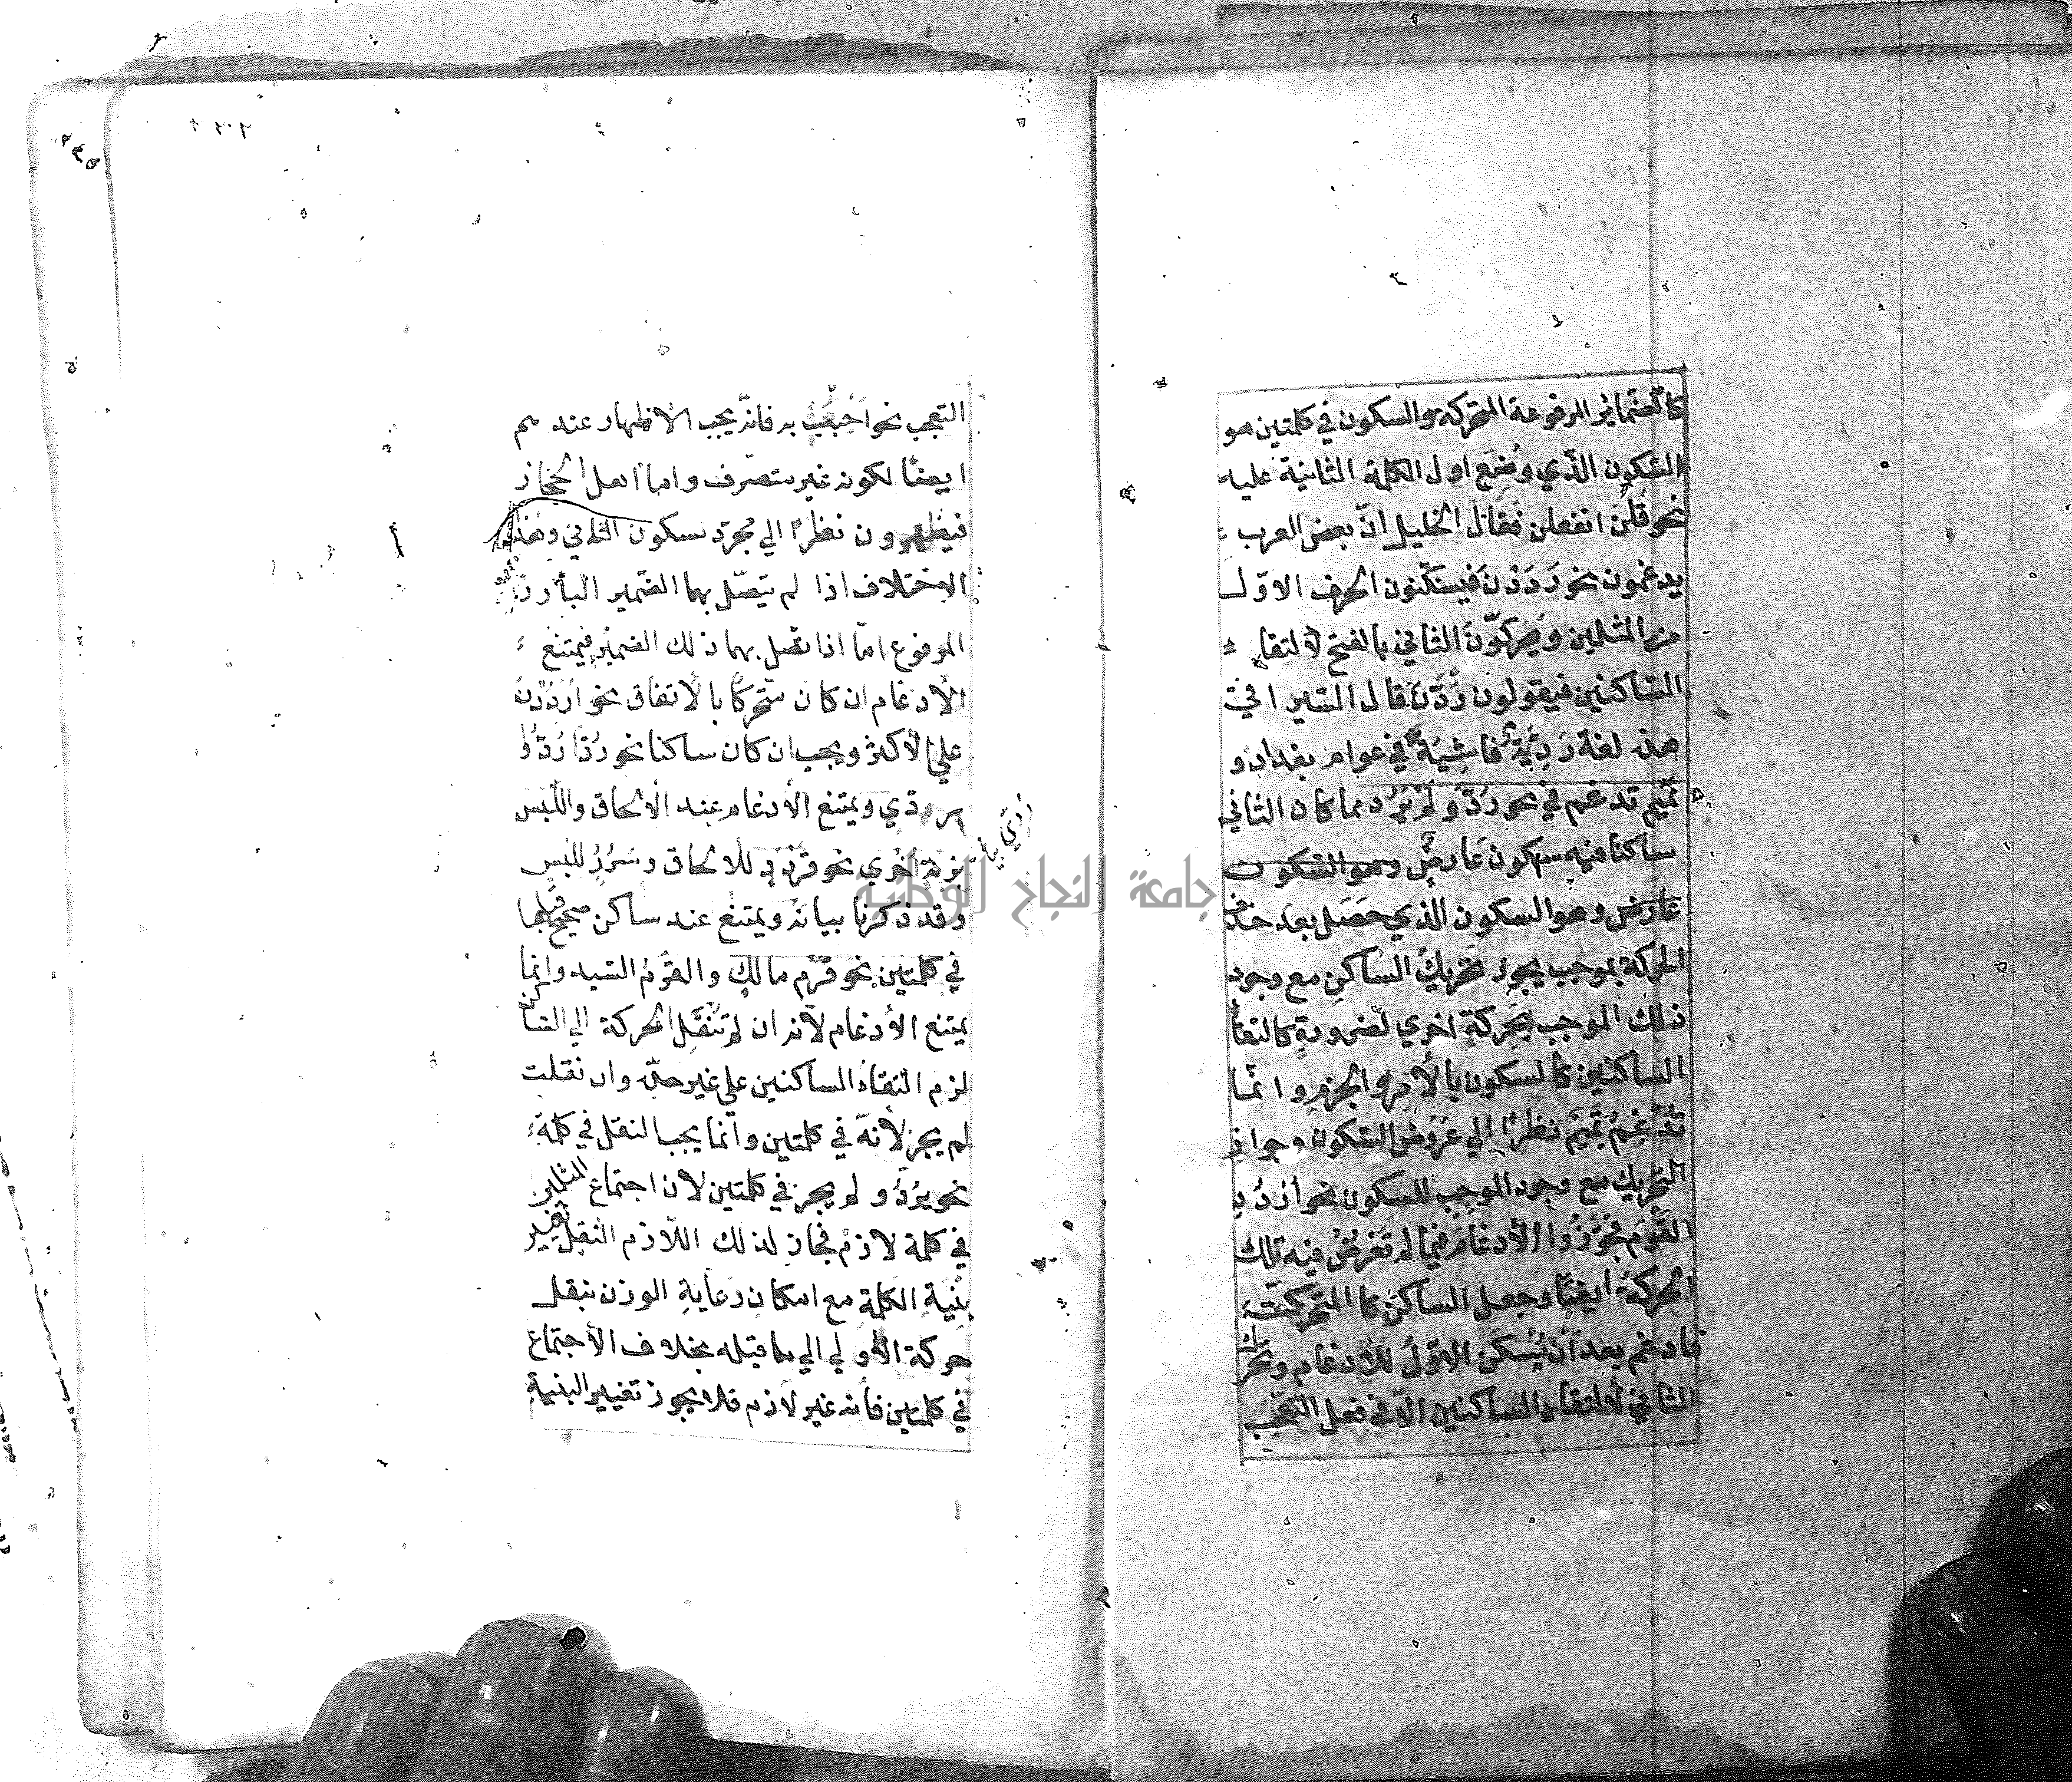 كالضماير المرفوعة المتحركة والسكون في كلمتين هو
السكون الذي وُضِعَ اول الكلمة الثانية عليه
نحو قُلنَ انفعلن فقال الخليل انّ بعض العرب
يدغمون نحو رَدَدْنَ فيسكّنون الحرف الاوّل
من المثلين ويحركّون الثاني بالفتح لالتقا
الساكنين فيقولون رَدَّنَ قال السيرافي
هذه لغة رَدِيَّةٌ فاشِيَةٌ في عوام بغداد و
تميم تدغم في نحو رُدَّ ولم يَرُدَّ مما كان الثاني
ساكنا فيه سكون عَارضٌ وهو السكون
عارض وهو السكون الذي حَصَل بعد حذف
الحركة بموجب يجوز تحريك الساكن مع وجود
ذلك الموجب بحركةٍ اخري لضرورةٍ كالتقأ
الساكنين كالسكون بالأمر والجزم وانّما
تُدْغِمُ تميمٌ نظرًا الي عُرُوض السكون وجواز
التحريك مع وجود الموجب للسكون نحو أُرْدُدِ
القَوْمَ فجَوَّزُوا الأدغامَ فيما لم تَعْرِضْ فيه تلك
الحركة ايضًا وجعل الساكن كالمتحركت
فادغم بعد أن يُسْكَن الاوّلُ للأدغام وتحرك
الثاني لألتقاء الساكنين الاّ في فعل التعجّب
التعجب نحو احْبِبْ به فانّه يجب الأظهار عندهم
ايضًا لكونه غير متصرف واما اهل الحجاز
فيظهرون نظرًا الي مجرّد سكون الثاني وهذا
الاختلاف اذا لم يتصّل بهما الضمير البارز
المرفوع امّا اذا تصّل بهما ذلك الضمير فيمتنع
الأدغام ان كان متحركًا بالأتفاق نحو اُرْدُدْنَ
علي الأكثر ويجب ان كان ساكنا نحو رُدَّا رُدُّوا
ردّي ويمتنع الأدغام عند الألحاق واللّبس
ردّي
بزنة أخري نحو قَرْدَدٍ للألحاق وسُرُرٍ للبس
وقد ذكرنا بيانه ويمتنع عند ساكن صحيح قبلها
في كلمتين نحو قَرْم مالكٍ والقَوْمُ السّيد وانما
يمتنع الأدغام لأنه ان لم تنقل الحركة الي الساكن
لزم التقاء الساكنين علي غير حدّه وان نقلت
لم يجز لأنهّ في كلمتين وأنما يجب النقل في كلمة
نحو يَرُدُّ ولم يجز في كلمتين لأن اجتماع المثلين
في كلمة لازم فجاز لذلك اللاّزم الثقيل تغيير
بِنْيَةِ الكلمة مع امكان رعاية الوزن بنقل
حركة الأولي الي ما قبله بخلاف الأجتماع
في كلمتين فأنه غير لازم فلا يجوز تغيير البنية
جامعة النجاح الوطنية